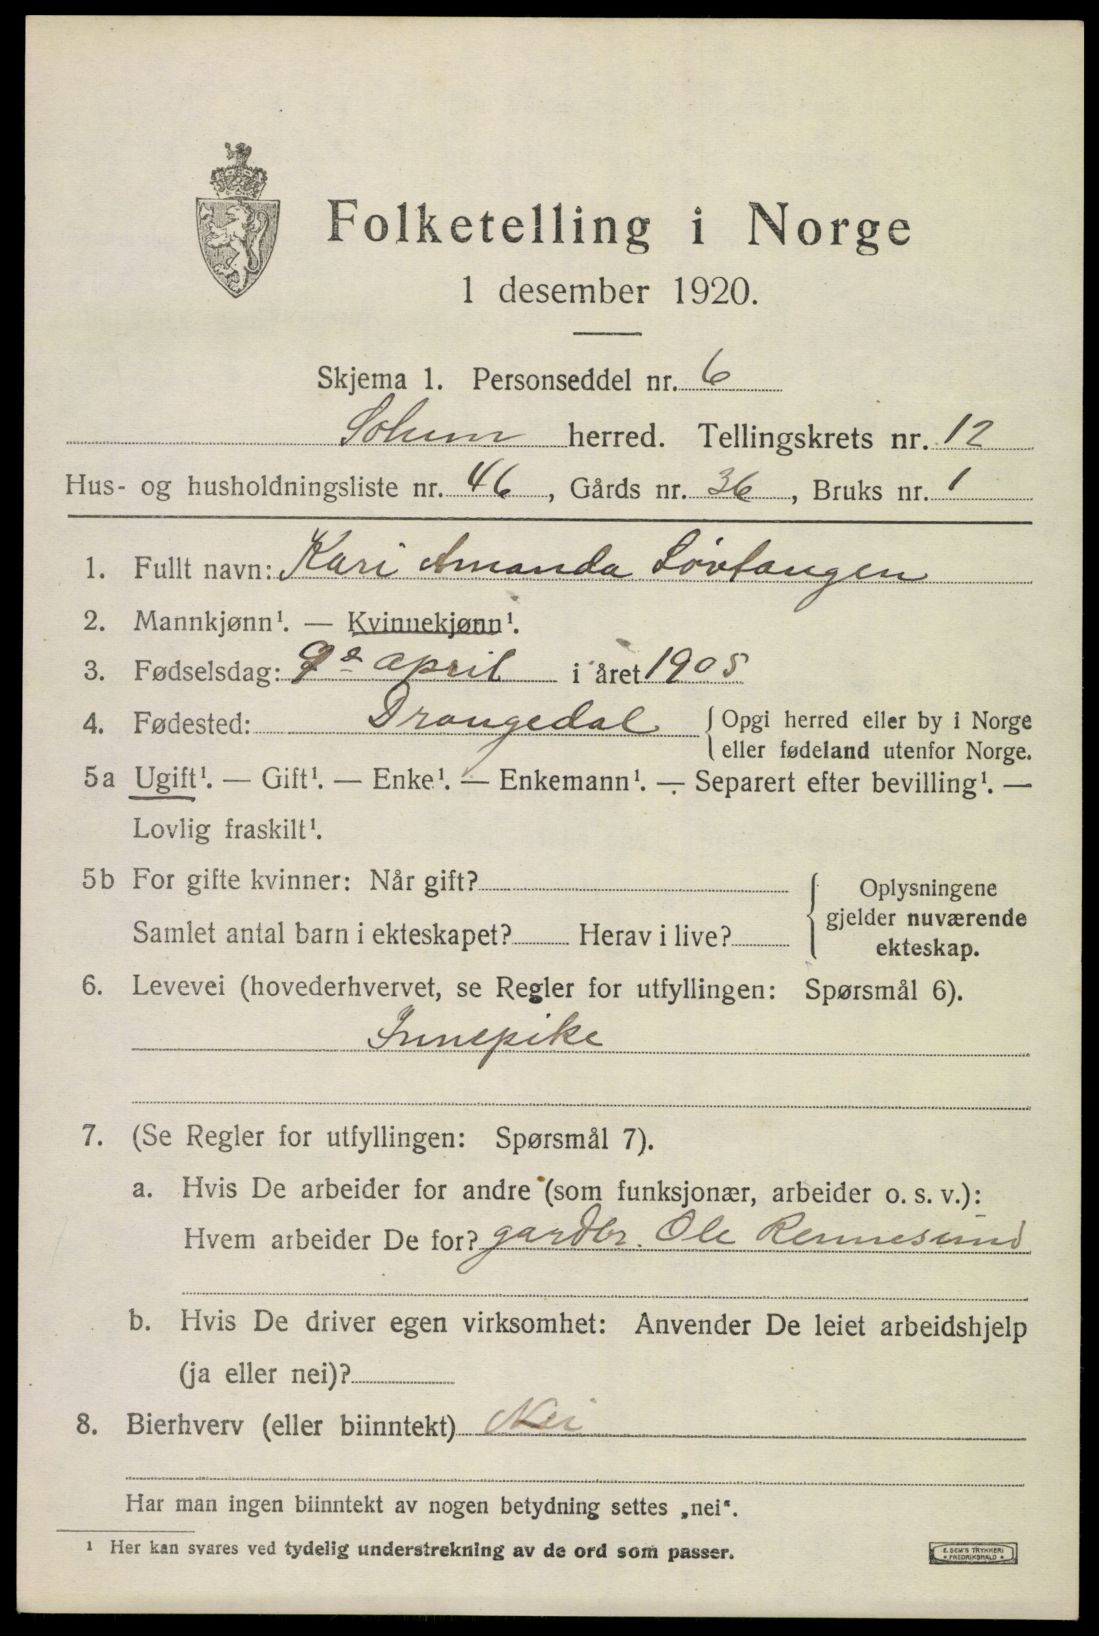 Folketelling i Norge
1 desember 1920.
Skjema 1. Personseddel nr. 6
Solum herred. Tellingskrets nr. 12
Hus- og husholdningsliste nr. 46, Gårds nr. 36, Bruks nr. 1
1. Fullt navn: Kari Amanda Løvtangen
2. Mannkjønn¹. — Kvinnekjønn¹.
3. Fødselsdag: 9de april i året 1905
4. Fødested: Drangedal {Opgi herred eller by i Norge
eller fødeland utenfor Norge.
5a Ugift¹. — Gift¹. — Enke¹. — Enkemann¹. — Separert efter bevilling¹. —
Lovlig fraskilt¹.
5b For gifte kvinner: Når gift?
Samlet antal barn i ekteskapet? Herav i live?
Oplysningene
gjelder nuværende
ekteskap.
6. Levevei (hovederhvervet, se Regler for utfyllingen: Spørsmål 6).
Innepike
7. (Se Regler for utfyllingen: Spørsmål 7).
a. Hvis De arbeider for andre (som funksjonær, arbeider o. s. v.):
Hvem arbeider De for? gardbr. Ole Rennesund
b. Hvis De driver egen virksomhet: Anvender De leiet arbeidshjelp
(ja eller nei)?
8. Bierhverv (eller biinntekt) Nei
Har man ingen biinntekt av nogen betydning settes „nei“.
¹ Her kan svares ved tydelig understrekning av de ord som passer.
E. SEM'S TRYKKERI
• FREDRIKSHALD •